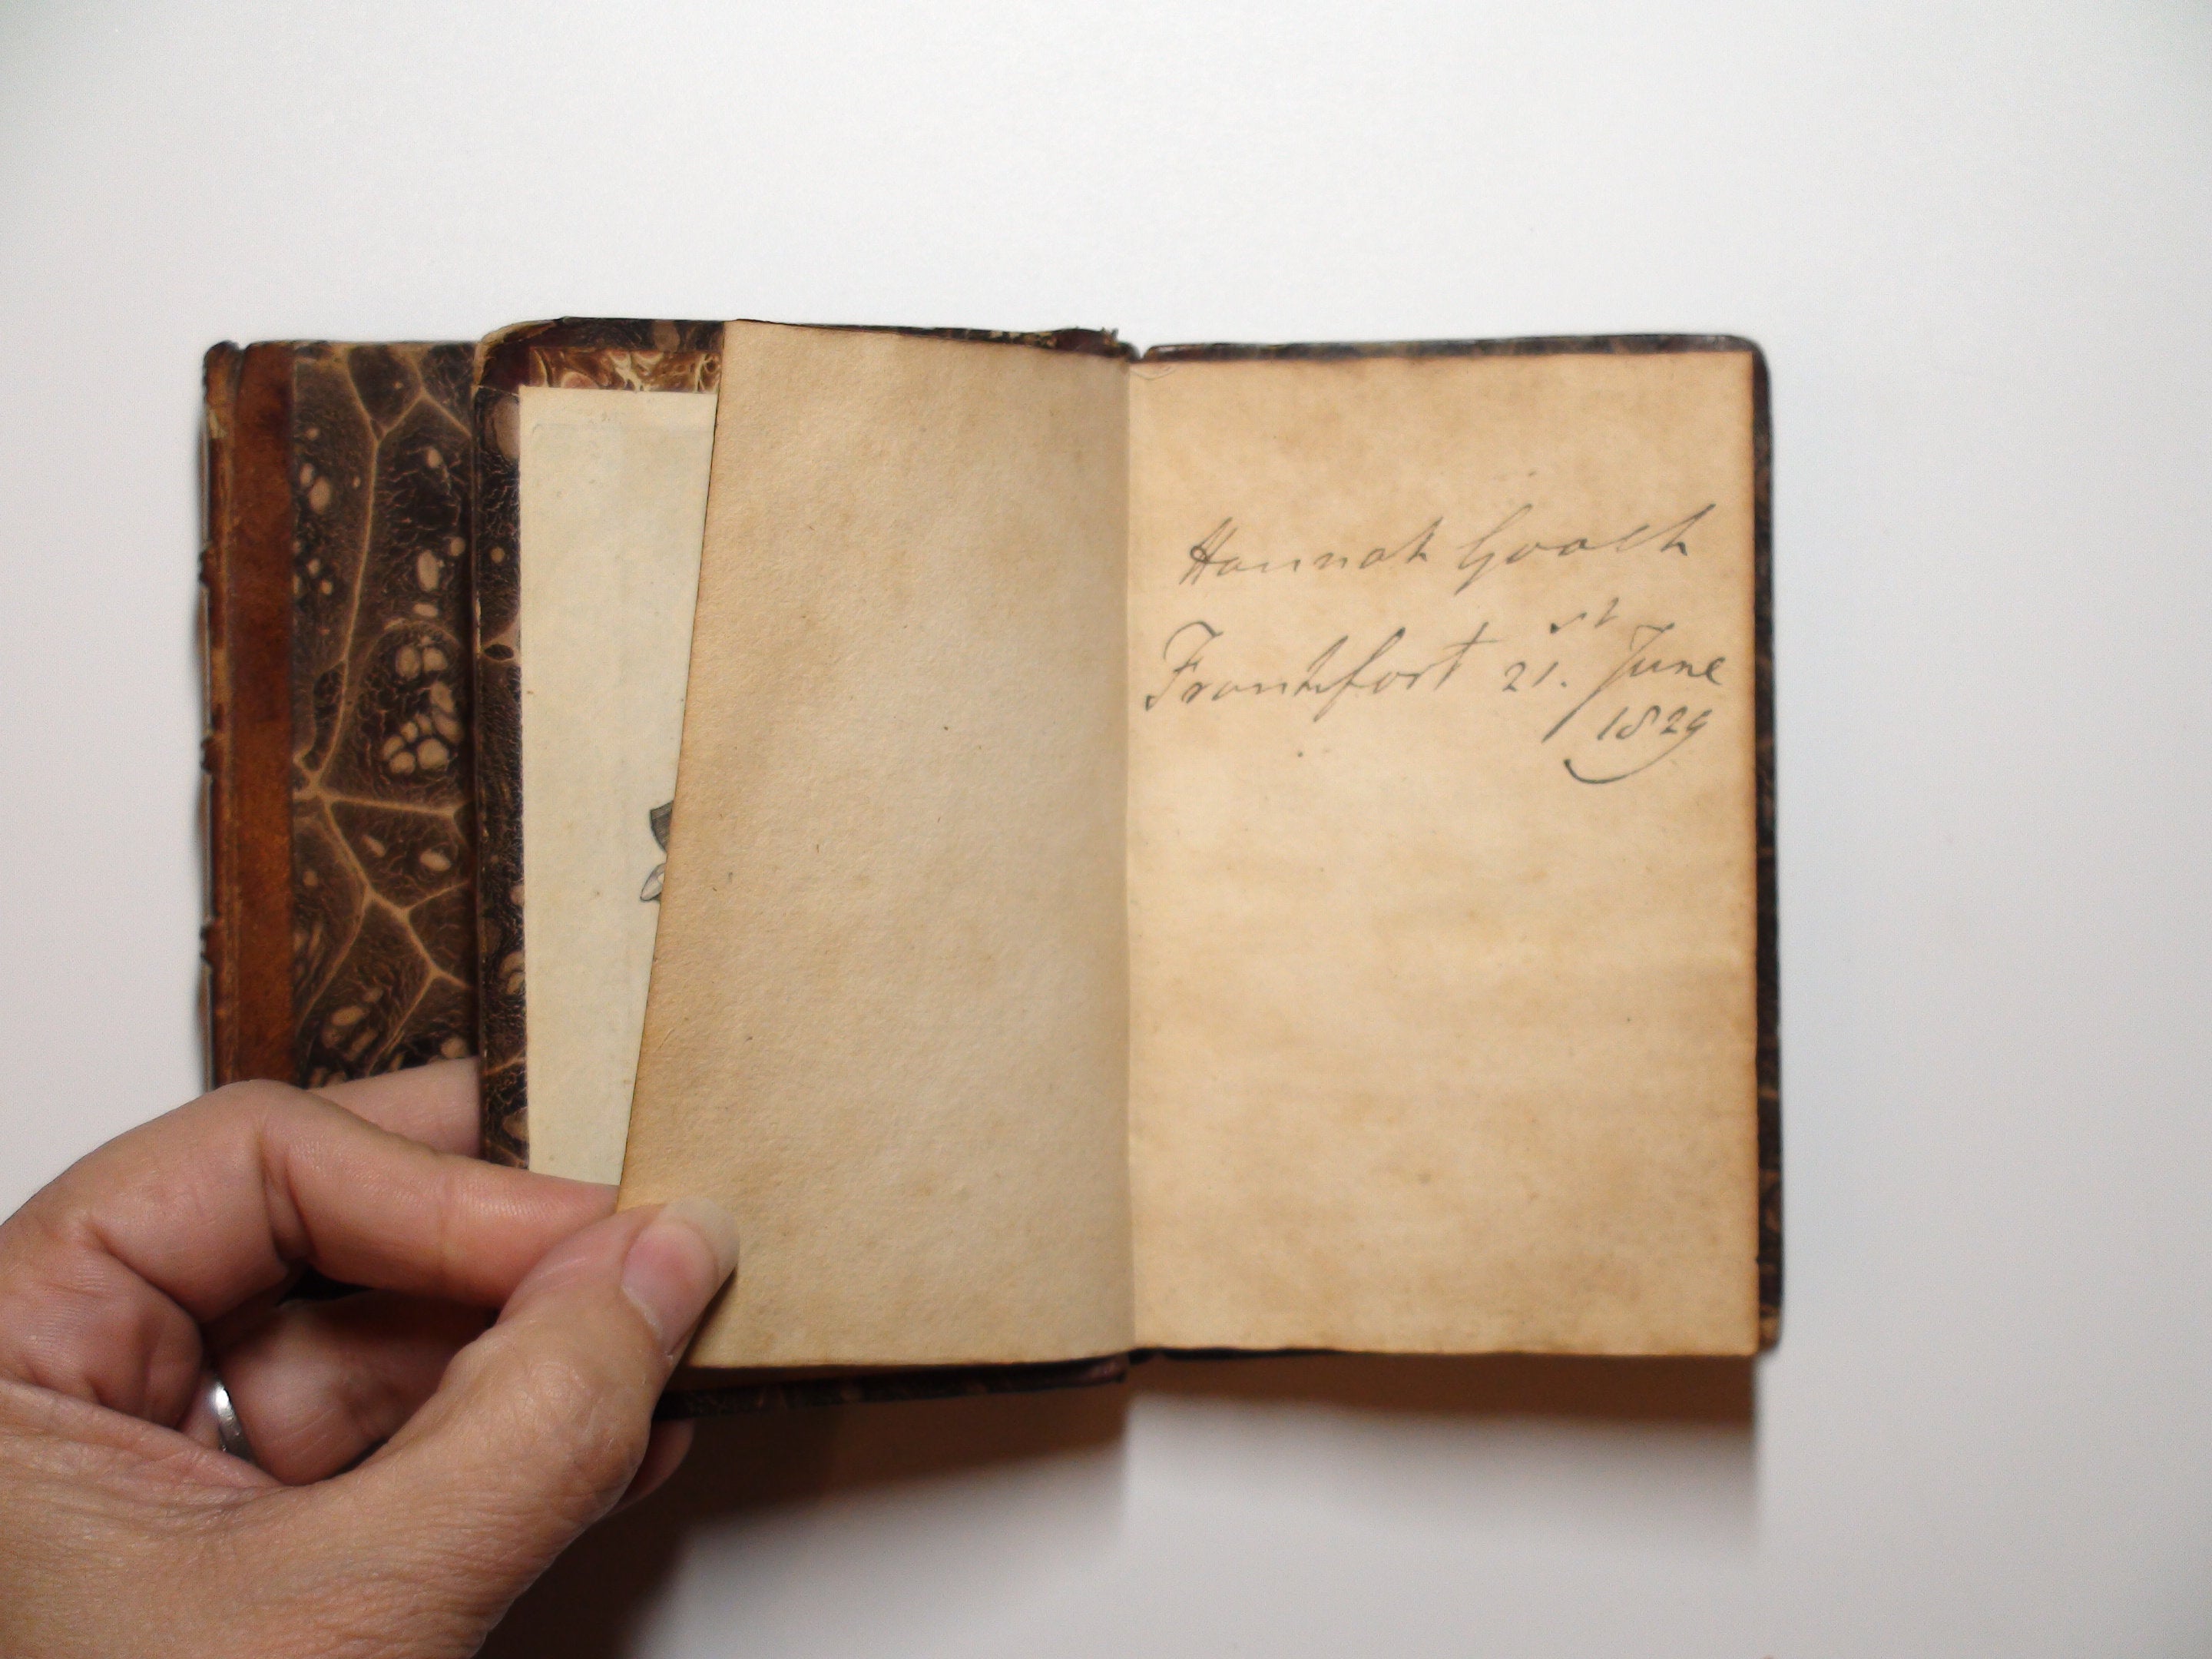 Hannah Gooch
Frankfort 21.st June
1829